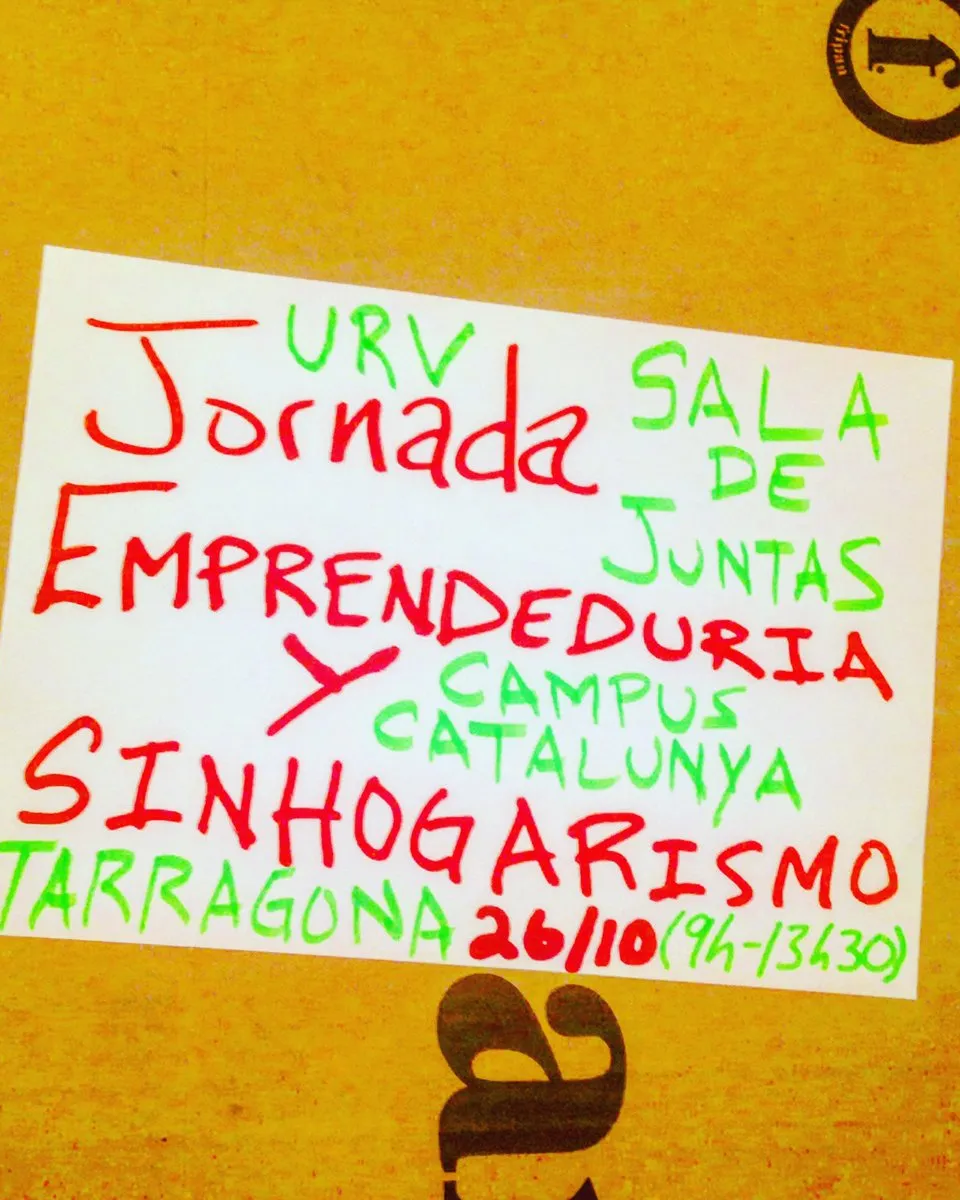 fripan
f
URV
Jornada
SALA
DE
JUNTAS
EMPRENDEDURIA
Y
CAMPUS
CATALUNYA
SINHOGARISMO
TARRAGONA 26/10 (9h-13h30)
a